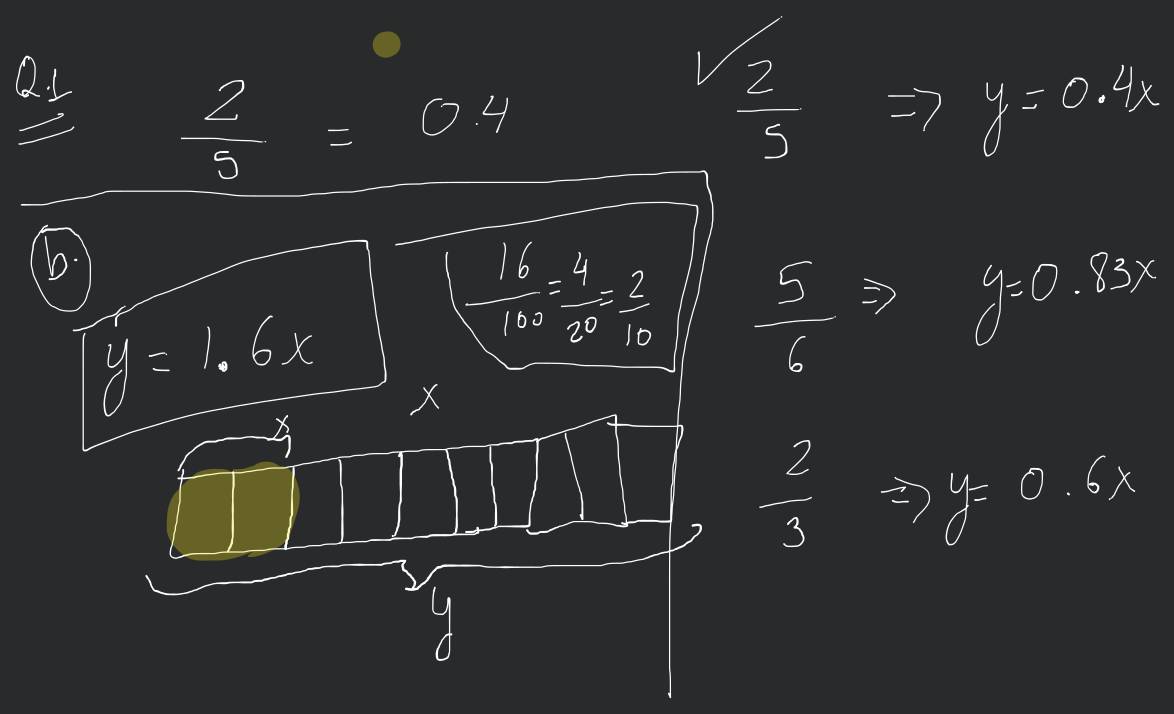 Q.1
2/5 = 0.4
✓ 2/5 ⇒ y = 0.4x
b.
y = 1.6x
16/100 = 4/20 = 2/10
5/6 ⇒ y = 0.83x
x
x
2/3 ⇒ y = 0.6x
y